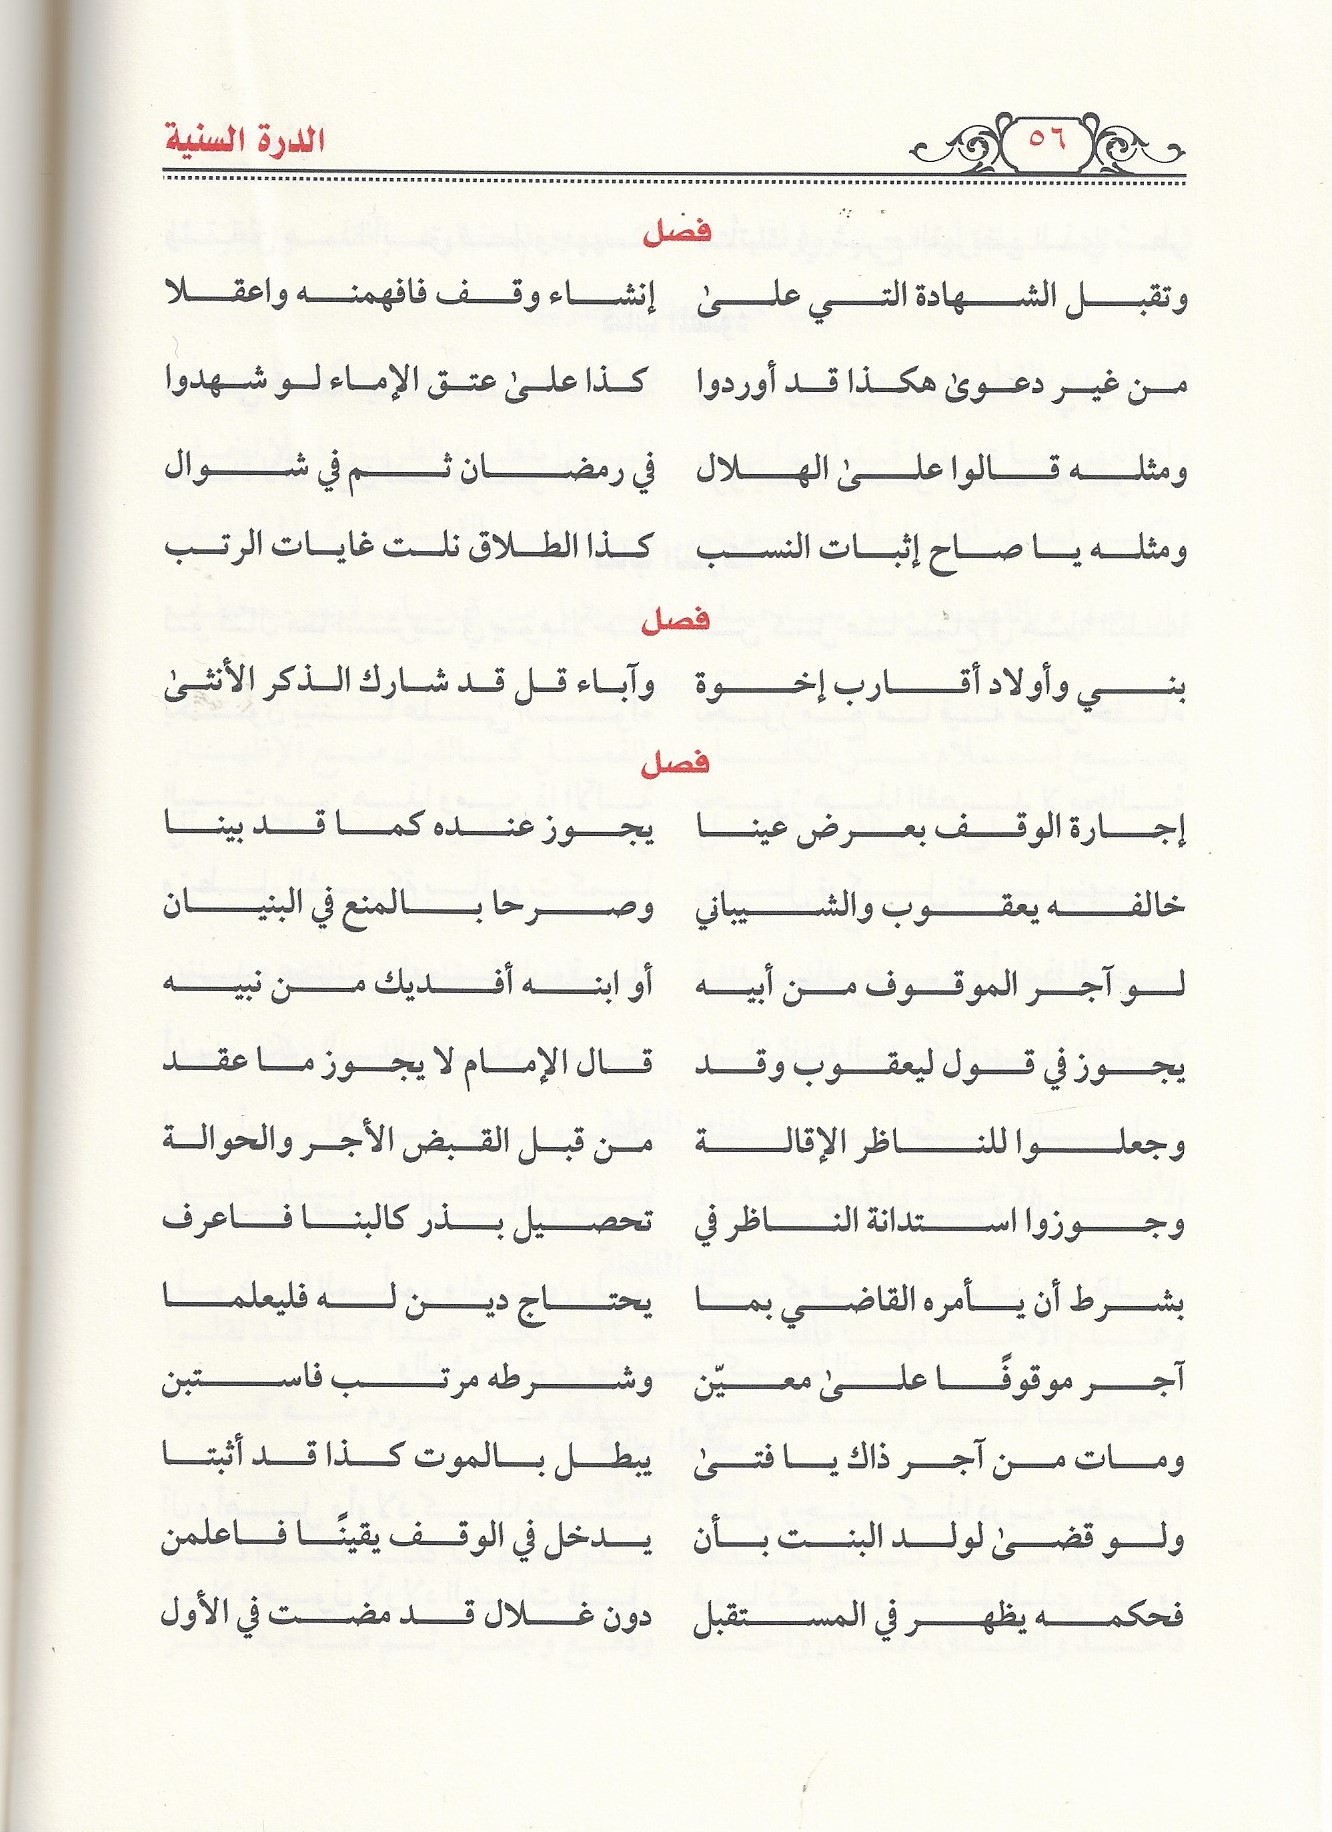 ٥٦ الدرة السنية
فصل
وتقبل الشهادة التي علىٰ إنشاء وقف فافهمنه واعقلا
من غير دعوىٰ هكذا قد أوردوا كذا علىٰ عتق الإماء لو شهدوا
ومثله قالوا علىٰ الهلال في رمضان ثم في شوال
ومثله يا صاح إثبات النسب كذا الطلاق نلت غايات الرتب
فصل
بني وأولاد أقارب إخوة وآباء قل قد شارك الذكر الأنثىٰ
فصل
إجارة الوقف بعرض عينا يجوز عنده كما قد بينا
خالفه يعقوب والشيباني وصرحا بالمنع في البنيان
لو آجر الموقوف من أبيه أو ابنه أفديك من نبيه
يجوز في قول ليعقوب وقد قال الإمام لا يجوز ما عقد
وجعلوا للناظر الإقالة من قبل القبض الأجر والحوالة
وجوزوا استدانة الناظر في تحصيل بذر كالبنا فاعرف
بشرط أن يأمره القاضي بما يحتاج دين له فليعلما
آجر موقوفًا علىٰ معيّن وشرطه مرتب فاستبن
ومات من آجر ذاك يا فتىٰ يبطل بالموت كذا قد أثبتا
ولو قضىٰ لولد البنت بأن يدخل في الوقف يقينًا فاعلمن
فحكمه يظهر في المستقبل دون غلال قد مضت في الأول